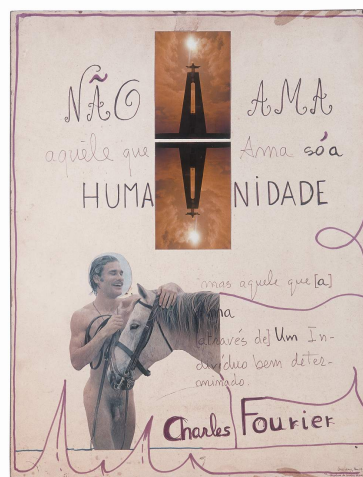 NÃO AMA
aquêle que Ama só a
HUMANIDADE
mas aquele que [a]
através de] Um In-
divíduo bem deter-
minado.
Charles Fourier